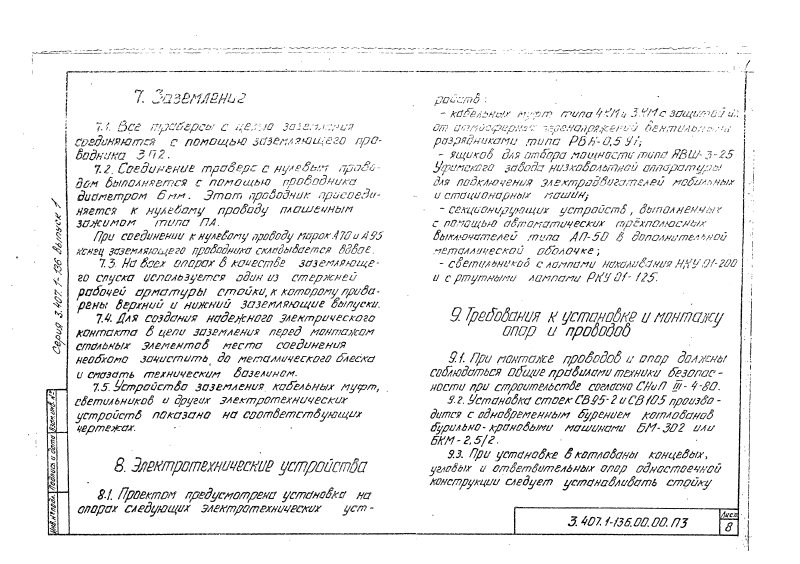 7. Заземление
7.1. Все траверсы с целью заземления
соединяются с помощью заземляющего про-
водника ЗП2.
7.2. Соединение траверс с нулевым прово-
дом выполняется с помощью проводника
диаметром 6мм. Этот проводник присоеди-
няется к нулевому проводу плашечным
зажимом типа ПА.
При соединении к нулевому проводу марок А70 и А95
конец заземляющего проводника складывается вдвое.
7.3. На всех опорах в качестве заземляюще-
го спуска используется один из стержней
рабочей арматуры стойки, к которому прива-
рены верхний и нижний заземляющие выпуски.
7.4. Для создания надежного электрического
контакта в цепи заземления перед монтажом
стальных элементов места соединения
необхомо зачистить до металлического блеска
и смазать техническим вазелином.
7.5. Устройство заземления кабельных муфт,
светильников и других электротехнических
устройств показано на соответствующих
чертежах.
8. Электротехнические устройства
8.1. Проектом предусмотрена установка на
опорах следующих электротехнических уст-
ройств:
- кабельных муфт типа 4КМ и 3КМ с защитой их
от атмосферных перенапряжений вентильными
разрядниками типа РВН-0,5 У1;
- ящиков для отбора мощности типа ЯВШ-3-25
Уфимского завода низковольтной аппаратуры
для подключения электродвигателей мобильных
и стационарных машин;
- секционирующих устройств, выполненных
с помощью автоматических трехполюсных
выключателей типа АП-50 в дополнительной
металлической оболочке;
- светильников с лампами накаливания НКУ 01-200
и с ртутными лампами РКУ 01-125.
9. Требования к установке и монтажу
опор и проводов
9.1. При монтаже проводов и опор должны
соблюдаться общие правилами техники безопас-
ности при строительстве согласно СНиП III-4-80.
9.2. Установка стоек СВ95-2 и СВ105 произво-
дится с одновременным бурением котлованов
бурильно-крановыми машинами БМ-302 или
БКМ-2,5/2.
9.3. При установке в котлованы концевых,
угловых и ответвительных опор одностоечной
конструкции следует устанавливать стойку
Серия 3.407.1-136 Выпуск 1
Инв.№ подл. Подпись и дата Взам.инв.№
3.407.1-136.00.00.ПЗ
Лист
8